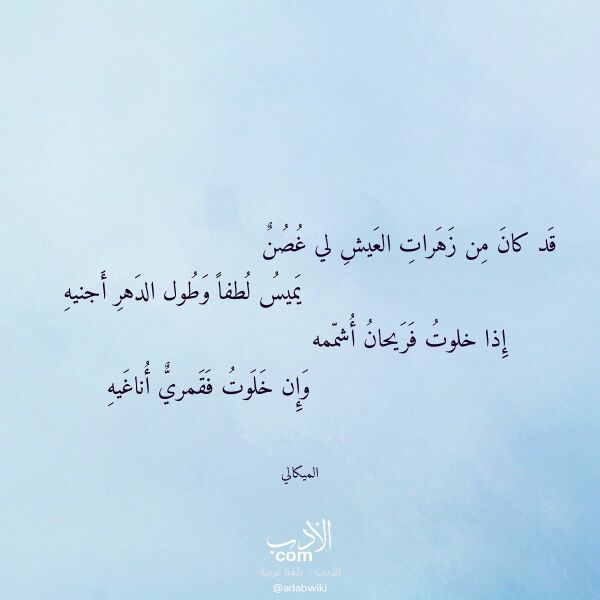 قَد كانَ مِن زَهَراتِ العَيشِ لي غُصُنٌ
يَميسُ لُطفاً وَطُول الدَهرِ أَجنيهِ
إِذا خلوتُ فَرَيحانُ أُشمّمه
وَإِن خَلَوتُ فَقَمريٌّ أُناغَيهِ
الميكالي
الأدب
com
الأدب .. بلغة عربية
@adabwiki